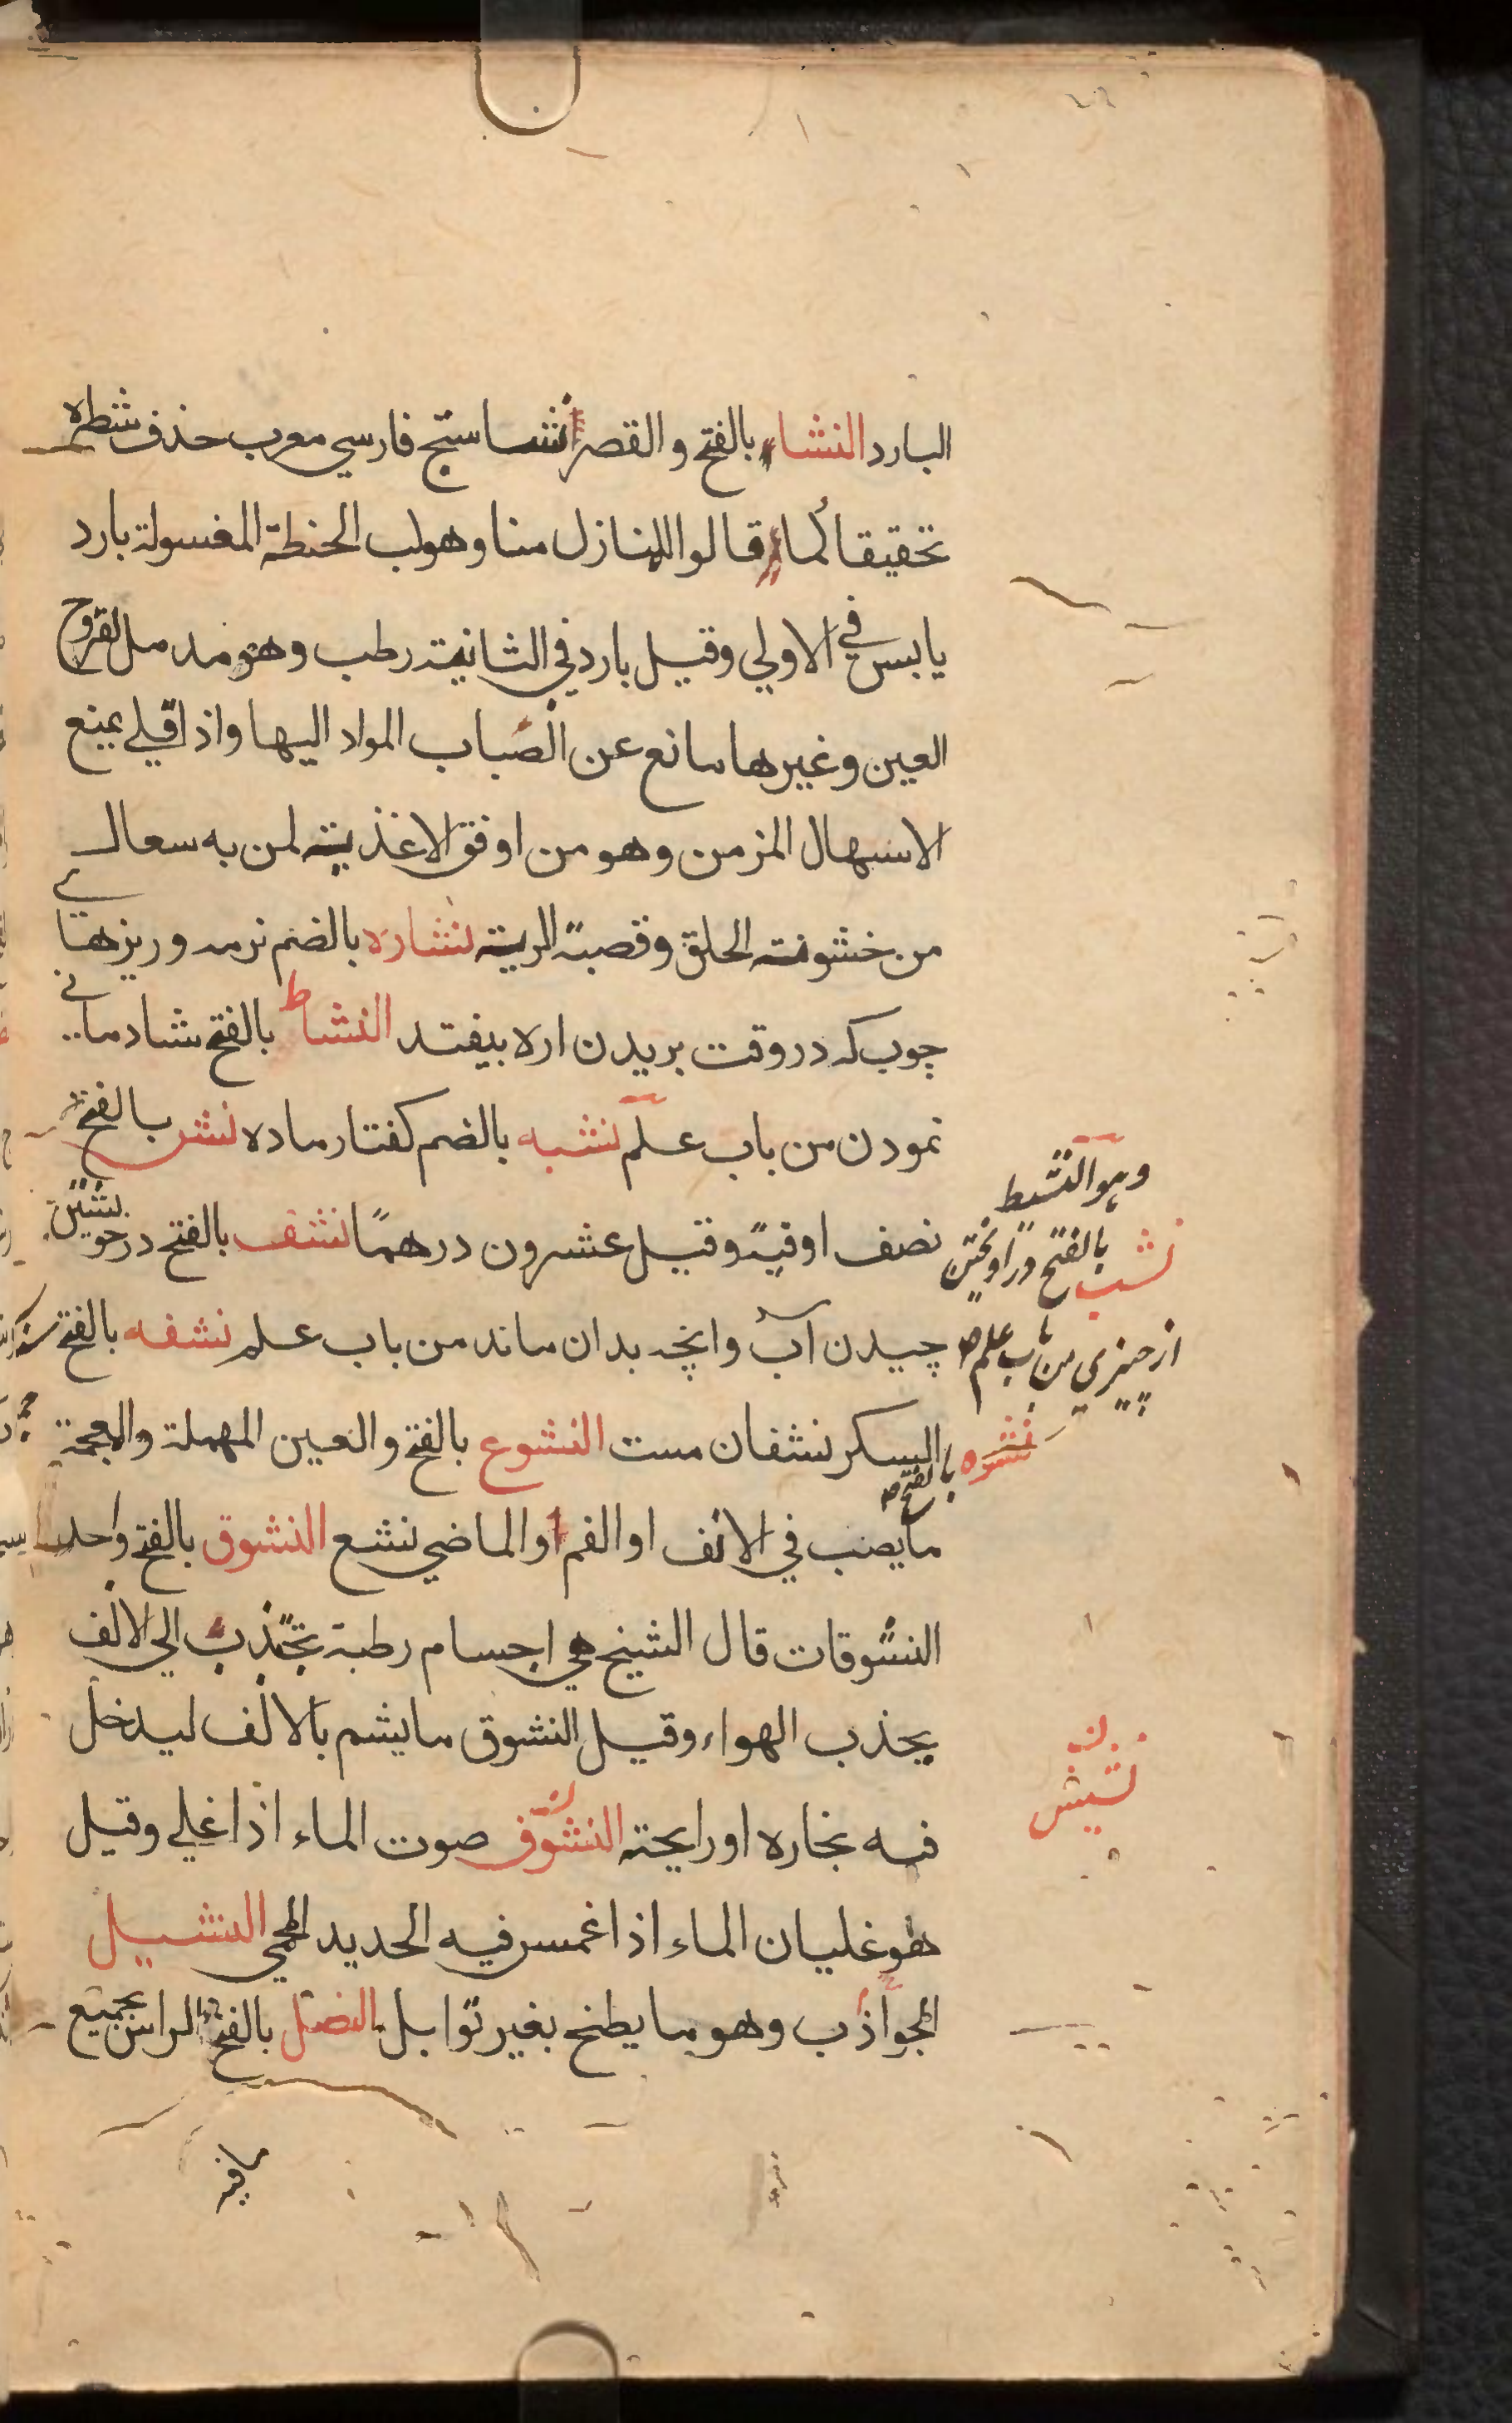 البارد النشاء بالفتح والقصر نشاستج فارسي معرب حذف شطره
تحقيقا كما قالوا للمنازل منا وهو لب الحنطة المغسولة بارد
يابس في الاولي وقيل بارد في الثانية رطب وهو مدمل لقروح
العين وغيرها مانع عن انصباب المواد اليها واذا قلي يمنع
الاسهال المزمن وهو من اوفق الاغذية لمن به سعال
من خشونته الحلق وقصبة الرية نشاره بالضم نرمه وريزهاي
چوب كه در وقت بريدن اره بيفتد النشاط بالفتح شادماني
نمودن من باب علم نشبه بالضم كفتار ماده نشر بالفتح
نصف اوقية وقيل عشرون درهمًا نشف بالفتح در خويشتن
چيدن آب وانچه بدان ماند من باب علم نشفه بالفتح
بالسكر نشفان مست النشوع بالفتح والعين المهملة والمعجمة
ما يصب في الانف او الفم او الماضي نشع النشوق بالفتح واحد
النشوقات قال الشيخ هي اجسام رطبة تجذب الي الانف
يجذب الهواء وقيل النشوق ما يشم بالانف ليدخل
فيه بخاره او رايحته النشوف صوت الماء اذا غلي وقيل
هو غليان الماء اذا غمس فيه الحديد المحمي النشيل
الجواذب وهو ما يطبخ بغير توابل النصل بالفتح الراس بجميع
ما فيه
وهو النشط
نشب بالفتح در اويختن
از چيزي من باب علم
نشره بالفتح
نشيش